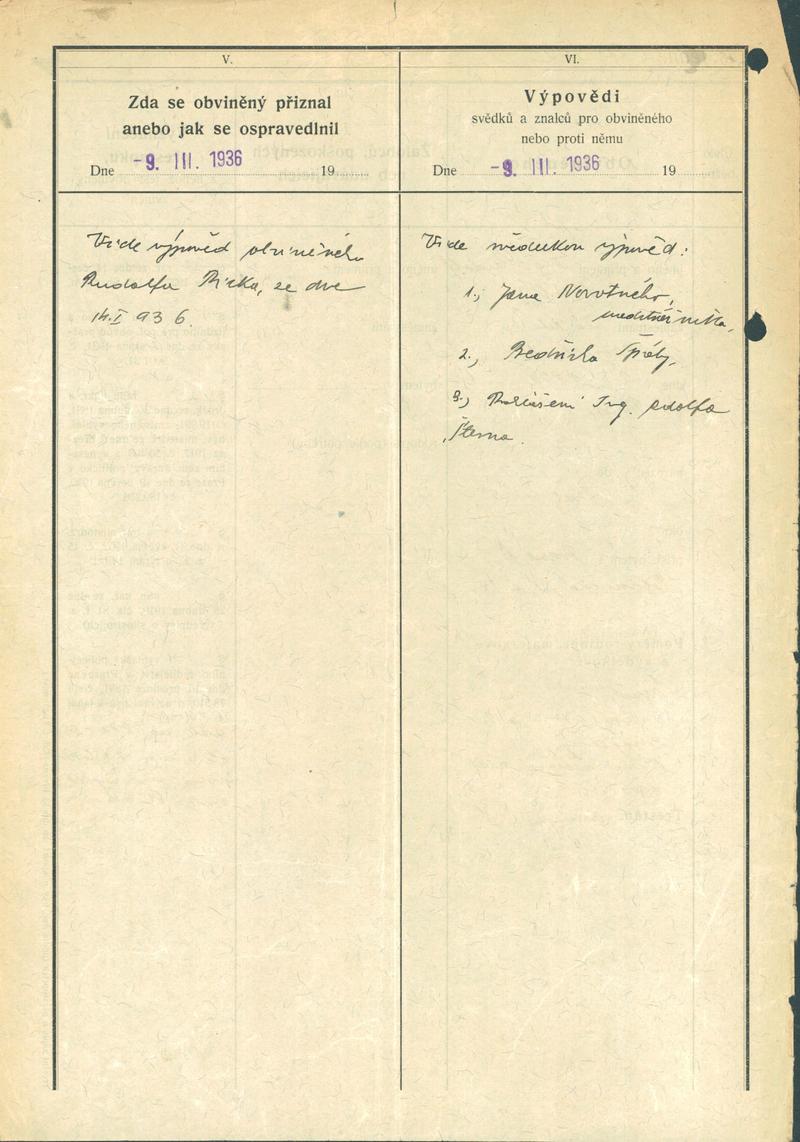 V.
Zda se obviněný přiznal
anebo jak se ospravedlnil
Dne -9. III. 1936 19
Vide výpověd obviněného
Rudolfa ze dne
14.I 936.
VI.
Výpovědi
svědků a znalců pro obviněného
nebo proti němu
Dne -9. III. 1936 19
Vide výpověd:
1., Jana Novotného,
2., Bedřicha
3.) Ing. Adolfa
Šterna.